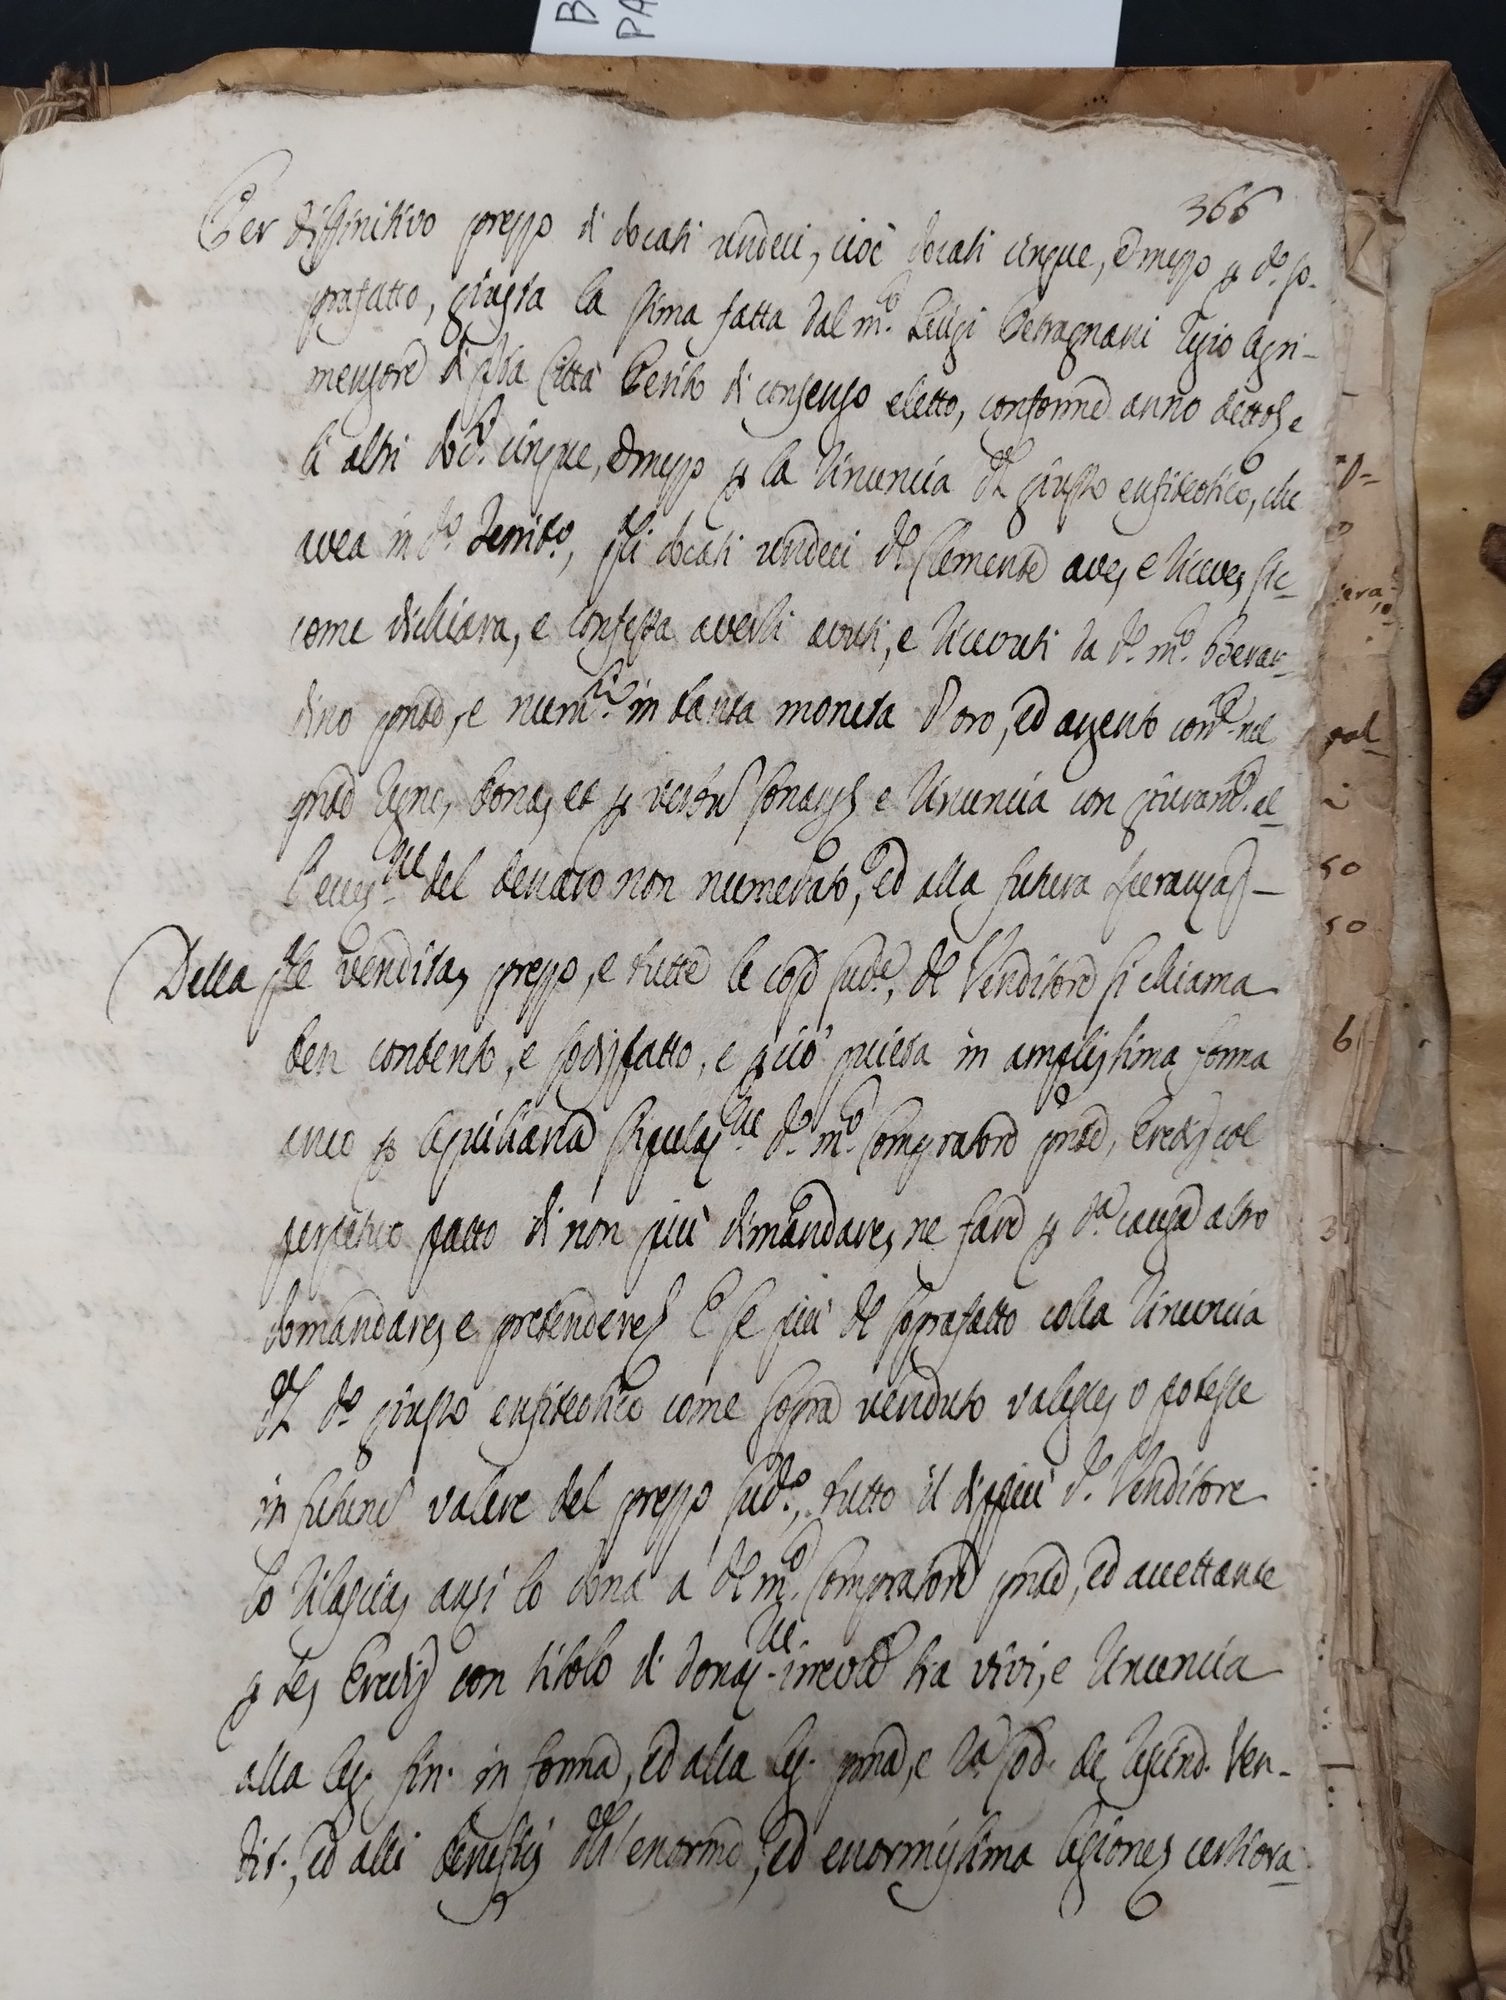 366
Per diffinitivo prezzo di docati undeci, cioè docati cinque, e mezzo p d.o so-
prafatto, giusta la stima fatta dal m.co Luigi Petragnani Regio Agri-
mensore di q.sta Città Perito di consenso eletto, conforme anno detto, e
li altri doc.ti cinque, e mezzo p la rinuncia del giusso enfiteotico, che
avea in d.o Territ.o, q.li docati undeci d.o Clemente ave, e riceve, sic-
come dichiara, e confessa averli avuti, e ricevuti da d.o m.co Berar-
dino pnte, e num.ti in tanta moneta d'oro, ed argento cor.te nel
pnte Regno, bona, et p
e rinuncia con giuram.to al-
l'eccez.ne del denaro non numerato, ed alla futura speranza
Della q.le vendita, prezzo, e tutte le cose sud.e, d.o Venditore si chiama
ben contento, e sodisfatto, e p ciò quieta in amplissima forma
anco p Aquiliana stipulaz.ne d.o m.co Compratore pnte, Eredi, col
perpetuo patto di non più dimandare, ne fare p d.a causa altro
domandare, e pretendere E se più d.o soprafatto colla rinuncia
del d.o giusso enfiteotico come sopra venduto valesse, o potesse
in futuro valere del prezzo sud.o, tutto il dippiù d.o Venditore
lo rilascia, anzi lo dona a d.o m.co Compratore pnte, ed accettante
p se, Eredi con titolo di donaz.ne irrevo.le tra vivi, e rinuncia
alla leg. fin. in forma, ed alla leg. pma, e 2.a Cod. de Rescind. Ven-
dit., ed alli beneficij dell'enorme, ed enormissima lesione, certiora-